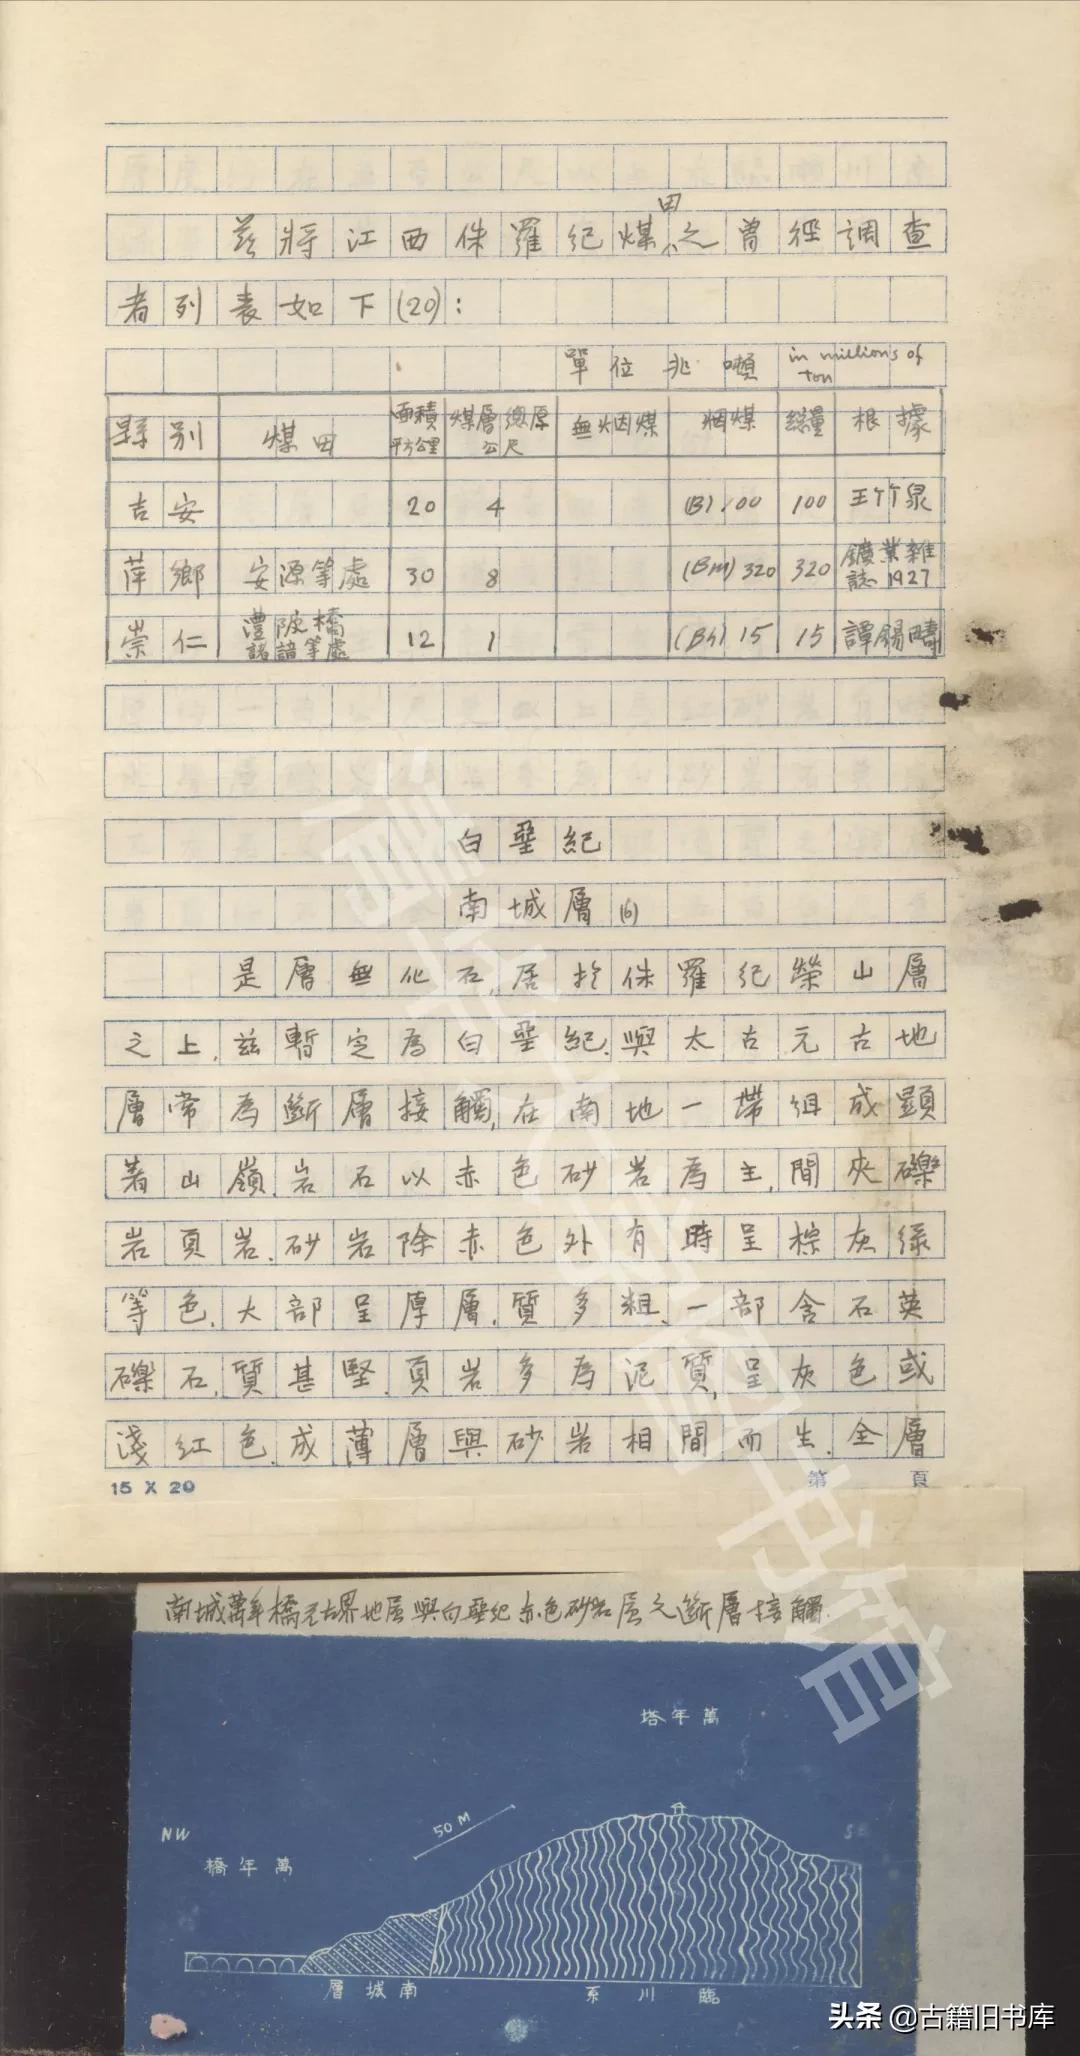 茲將江西侏羅紀煤田之曾經調查
者列表如下(20):
單位兆噸 in millions of ton
縣別 煤田 面積平方公里 煤層總厚公尺 無烟煤 烟煤 總量 根據
吉安 20 4 (B)100 100 王竹泉
萍鄉 安源等處 30 8 (Bm)320 320 鑛業雜誌1927
崇仁 澧陂橋諸諳等處 12 1 (Bh)15 15 譚錫疇
白堊紀
南城層(6)
是層無化石,居於侏羅紀榮山層
之上,茲暫定為白堊紀.與太古元古地
層常為斷層接觸,在南地一帶組成顯
著山嶺.岩石以赤色砂岩為主,間夾礫
岩頁岩.砂岩除赤色外有時呈棕灰綠
等色,大部呈厚層,質多粗,一部含石英
礫石,質甚堅.頁岩多為泥質,呈灰色或
淺紅色.成薄層與砂岩相間而生.全層
15 X 20 第 頁
南城萬年橋元古界地层與白堊紀赤色砂岩层之斷層接觸.
塔年萬
50 M
NW
SE
橋年萬
層城南
系川臨
头条 @古籍旧书库